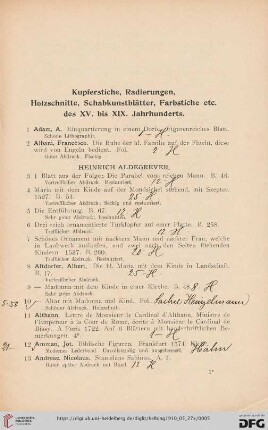 Kupferstiche, Radierungen,
Holzschnitte, Schabkunstblätter, Farbstiche etc.
des XV. bis XIX. Jahrhunderts.
1 Adam, A. Einquartierung in einem Dorfe. Figurenreiches Blatt.
Schöne Lithographie.
2 Alfoni, Francisco. Die Ruhe der hl. Familie auf der Flucht, diese
wird von Engeln bedient. Fol.
Guter Abdruck. Fleckig.
HEINRICH ALDEGREVER.
3 1 Blatt aus der Folge: Die Parabel vom reichen Mann. B. 44.
Vortrefflicher Abdruck. Restauriert. 12 H
4 Maria mit dem Kinde auf der Mondsichel stehend, mit Szepter.
1527. B. 51. 25 H
Vortrefflicher Abdruck.
5 Die Entführung. B. 67. 12 H
Sehr guter Abdruck. Restauriert.
6 Drei reich ornamentierte Trinklöpfer auf einer Platte. B. 258.
Trefflicher Abdruck. 12 H
7 Schönes Ornament mit nacktem Mann und nackter Frau, welche
in Laubwerk auslaufen, und zwei nach den Seiten fliehenden
Kindern. 1527. B. 260. 20 H
Trefflicher Abdruck. Restauriert.
8 Altdorfer, Albr. Die hl. Maria mit dem Kinde in Landschaft.
B. 17. 25 H
Vortrefflicher Abdruck. Restauriert.
9 — Madonna mit dem Kinde in einer Kirche. 8 H
Sehr guter Abdruck.
10 — Altar mit Madonna und Kind. Fol.
Schöner Abdruck. Restauriert.
11 Althann. Lettre de Monsieur le Cardinal d'Althann, Ministre de
l'Empereur à la Cour de Rome, écrite à Monsieur le Cardinal de
Bissy. A Paris 1722. Auf 6 Blättern mit handschriftlichen Be-
merkungen. 4°
12 Amman, Jot. Biblische Figuren. Frankfurt 1571. Kl. 4°.
Modernes Lederband. Unvollständig und ausgebessert.
13 Andreas, Nicolaus. Stanislaus Sabinus. A. 1.
Guter später Abdruck mit Rand. 12 H
1*
https://digi.ub.uni-heidelberg.de/diglit/helbing1910_05_27a/0005
© Universitätsbibliothek Heidelberg
gefördert durch die
DFG